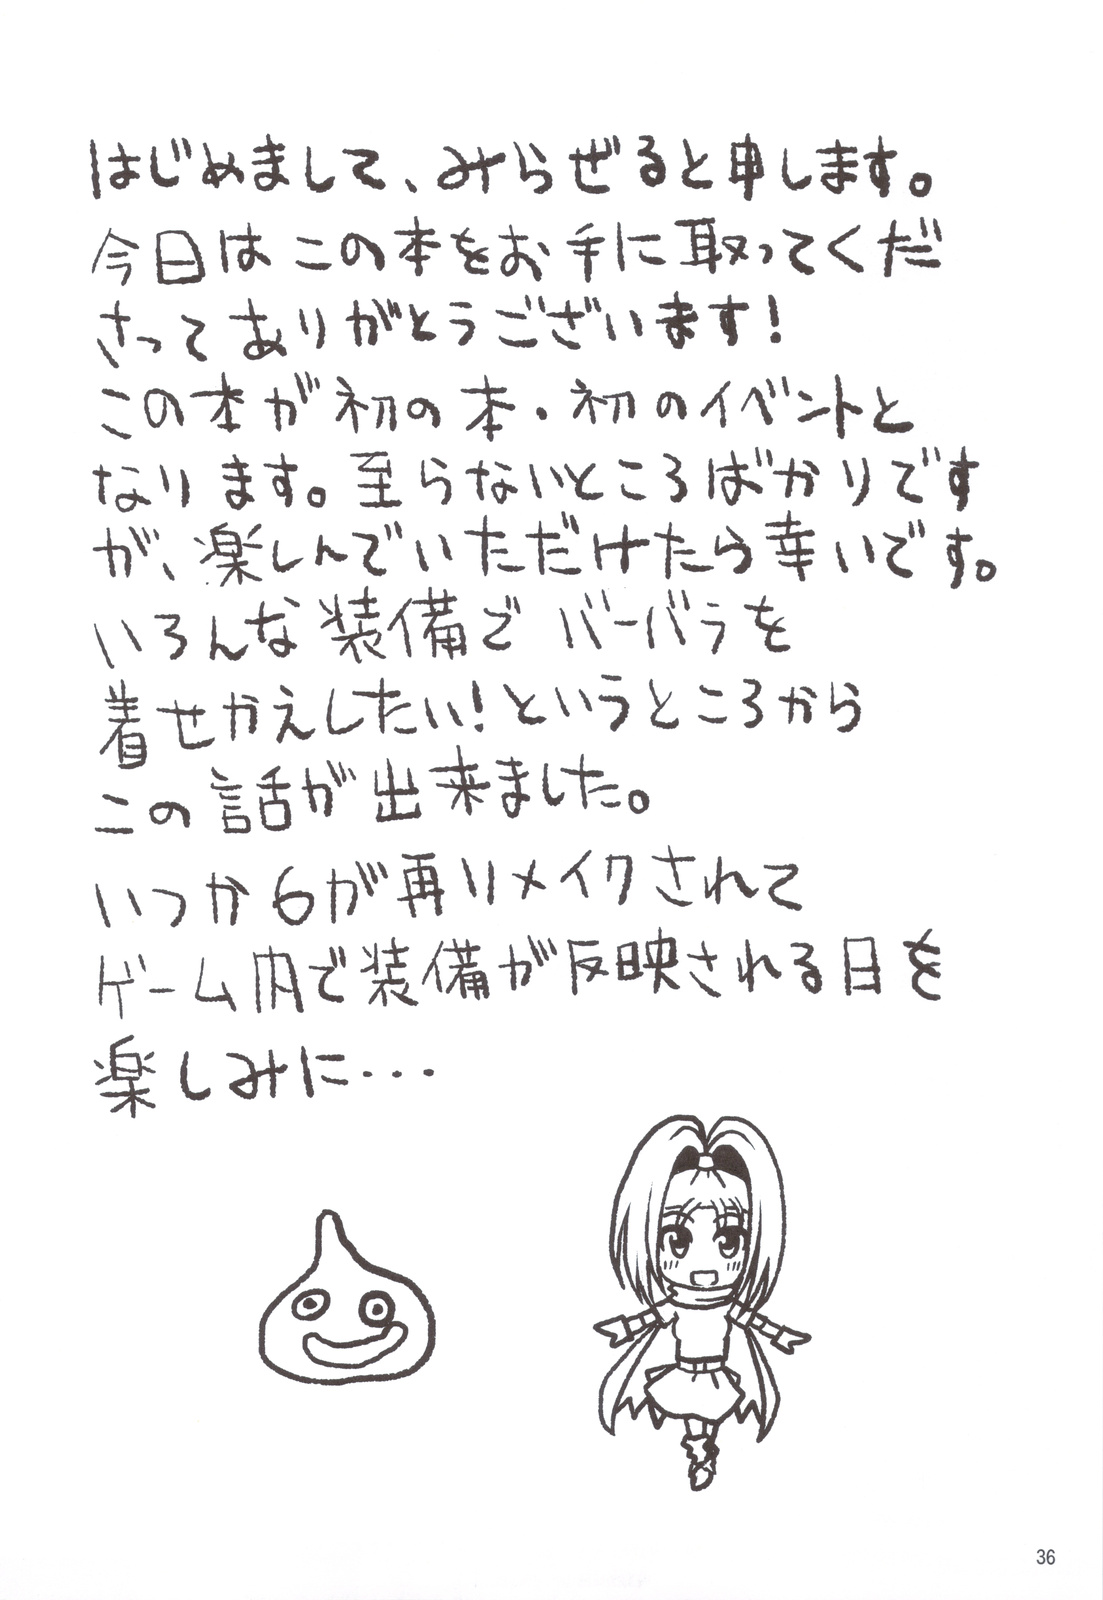 はじめまして、みらぜると申します。
今日はこの本をお手に取ってくだ
さってありがとうございます!
この本が初の本・初のイベントと
なります。至らないところばかりです
が、楽しんでいただけたら幸いです。
いろんな装備でバーバラを
着せかえしたい!というところから
この話が出来ました。
いつか6が再リメイクされて
ゲーム内で装備が反映される日を
楽しみに・・・
36